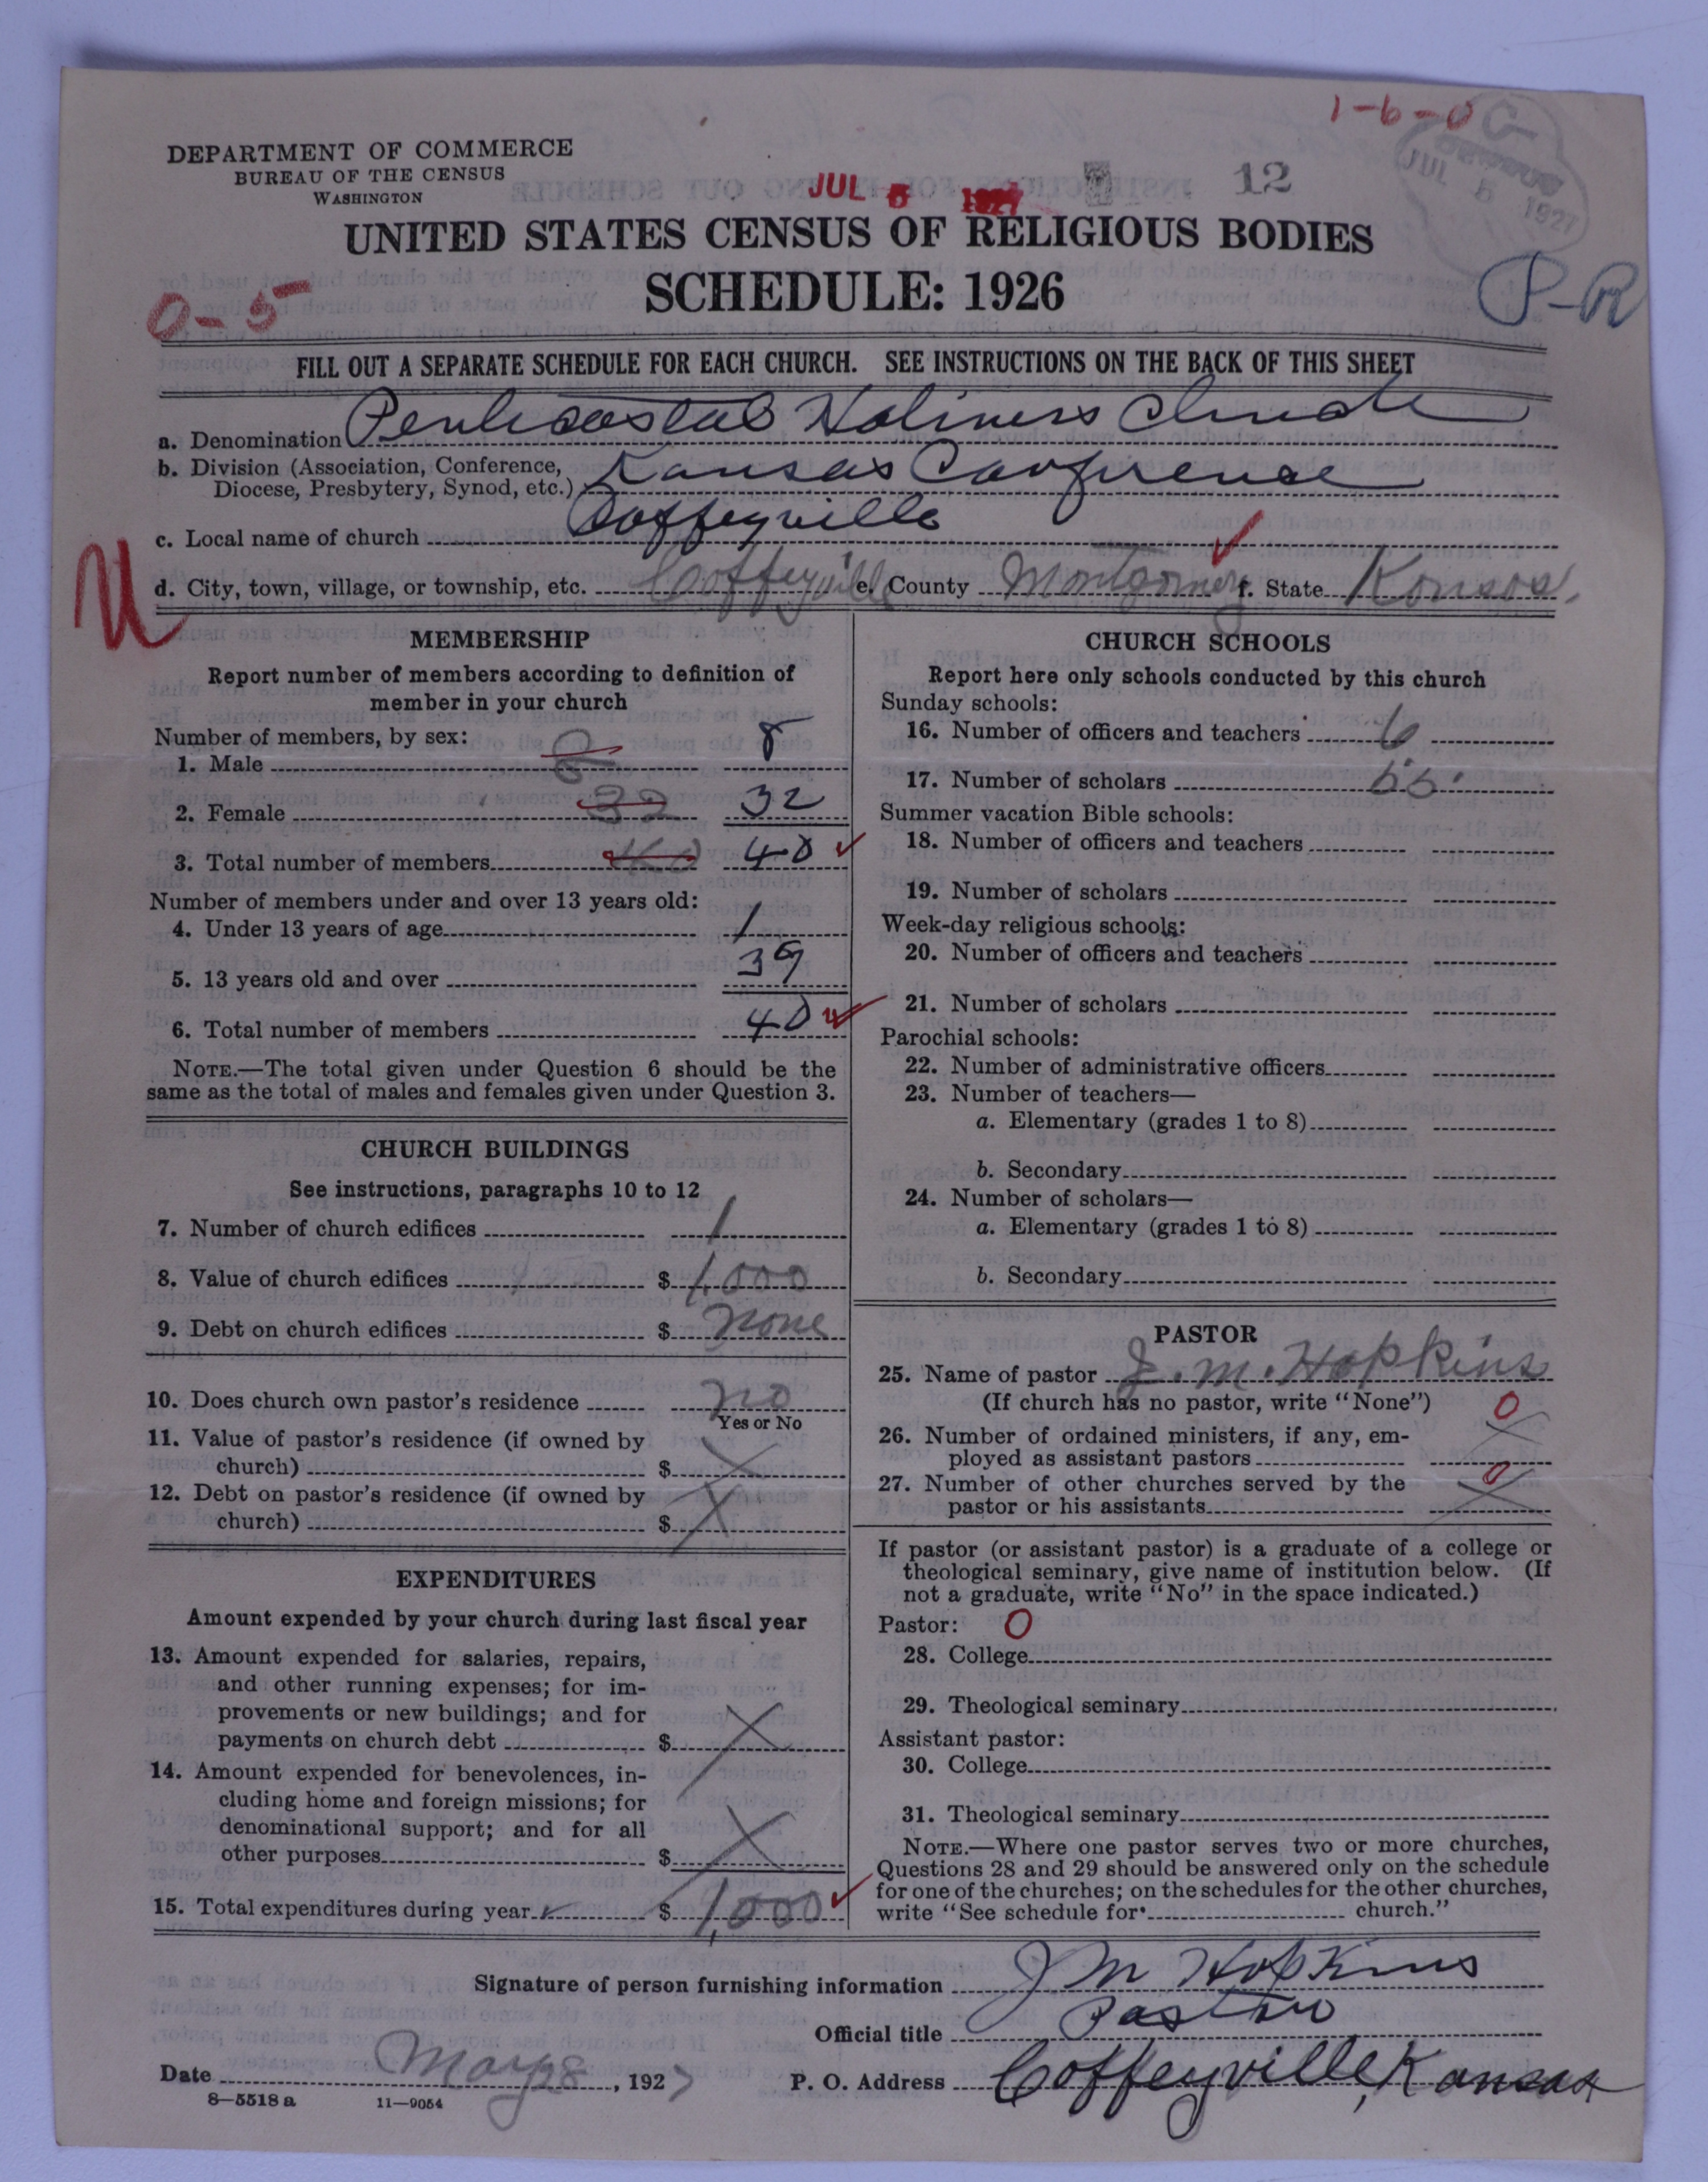 1-6-0
DEPARTMENT OF COMMERCE
BUREAU OF THE CENSUS
WASHINGTON
JUL 5 1927
12
CENSUS
JUL 5 1927
UNITED STATES CENSUS OF RELIGIOUS BODIES
SCHEDULE: 1926
0-5
P-R
FILL OUT A SEPARATE SCHEDULE FOR EACH CHURCH. SEE INSTRUCTIONS ON THE BACK OF THIS SHEET
a. Denomination Pentecostal Holiness Church
b. Division (Association, Conference, Diocese, Presbytery, Synod, etc.) Kansas Conference
c. Local name of church Coffeyville
U
d. City, town, village, or township, etc. Coffeyville e. County Montgomery f. State Kansas.
MEMBERSHIP
Report number of members according to definition of
member in your church
Number of members, by sex:
1. Male 8 8
2. Female 32 32
3. Total number of members 40 40
Number of members under and over 13 years old:
4. Under 13 years of age 1
5. 13 years old and over 39
6. Total number of members 40
NOTE.—The total given under Question 6 should be the
same as the total of males and females given under Question 3.
CHURCH BUILDINGS
See instructions, paragraphs 10 to 12
7. Number of church edifices 1
8. Value of church edifices $ 1,000
9. Debt on church edifices $ none
10. Does church own pastor's residence no
Yes or No
11. Value of pastor's residence (if owned by
church) $ X
12. Debt on pastor's residence (if owned by
church) $ X
EXPENDITURES
Amount expended by your church during last fiscal year
13. Amount expended for salaries, repairs,
and other running expenses; for im-
provements or new buildings; and for
payments on church debt $ X
14. Amount expended for benevolences, in-
cluding home and foreign missions; for
denominational support; and for all
other purposes $ X
15. Total expenditures during year $ 1,000
CHURCH SCHOOLS
Report here only schools conducted by this church
Sunday schools:
16. Number of officers and teachers 6
17. Number of scholars
Summer vacation Bible schools:
18. Number of officers and teachers
19. Number of scholars
Week-day religious schools:
20. Number of officers and teachers
21. Number of scholars
Parochial schools:
22. Number of administrative officers
23. Number of teachers—
a. Elementary (grades 1 to 8)
b. Secondary
24. Number of scholars—
a. Elementary (grades 1 to 8)
b. Secondary
PASTOR
25. Name of pastor J. M. Hopkins
(If church has no pastor, write "None")
26. Number of ordained ministers, if any, em-
ployed as assistant pastors 0 X
27. Number of other churches served by the
pastor or his assistants 0 X
If pastor (or assistant pastor) is a graduate of a college or
theological seminary, give name of institution below. (If
not a graduate, write "No" in the space indicated.)
Pastor: 0
28. College
29. Theological seminary
Assistant pastor:
30. College
31. Theological seminary
NOTE.—Where one pastor serves two or more churches,
Questions 28 and 29 should be answered only on the schedule
for one of the churches; on the schedules for the other churches,
write "See schedule for church."
Signature of person furnishing information J M Hopkins
Official title Pastor
Date May 28, 1927
P. O. Address Coffeyville, Kansas
8—5518 a 11—9054